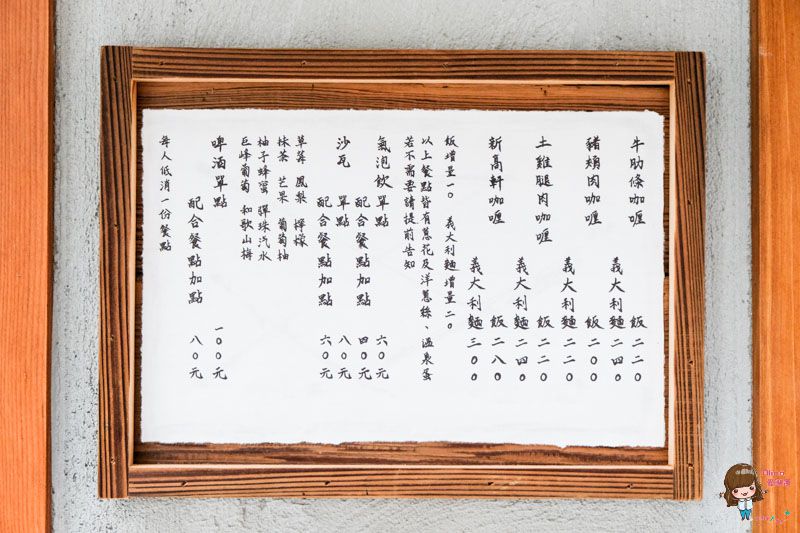 牛肋條咖喱
飯二二０
義大利麵二四０
豬頰肉咖喱
飯二００
義大利麵二二０
土雞腿肉咖喱
飯二二０
義大利麵二四０
新高軒咖喱
飯二八０
義大利麵三００
飯增量一０ 義大利麵增量二０
以上餐點皆有蔥花及洋蔥絲、溫泉蛋
若不需要請提前告知
氣泡飲 單點 六０元
配合餐點加點 四０元
沙瓦 單點 八０元
配合餐點加點 六０元
草莓 鳳梨 檸檬
抹茶 芒果 葡萄柚
柚子蜂蜜 彈珠汽水
巨峰葡萄 和歌山梅
啤酒單點 一００元
配合餐點加點 八０元
每人低消一份餐點